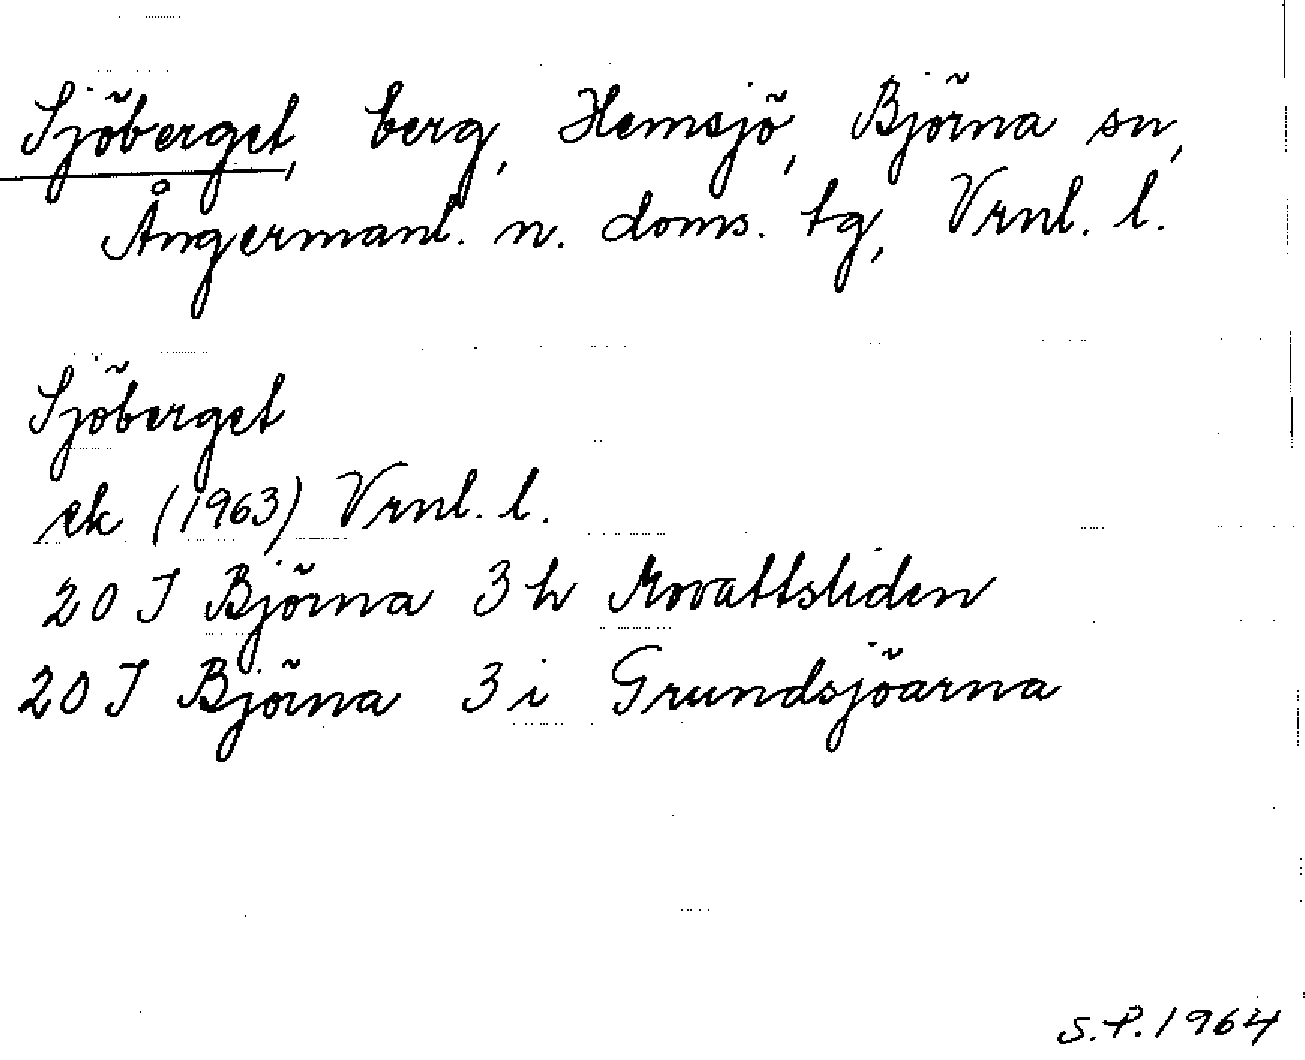 Sjöberget, berg, Hemsjö, Björna sn,
Ångermanl. n. doms. tg, Vrnl. l.
Sjöberget
ek (1963) Vrnl. l.
20 J Björna 3 h Movattsliden
20 J Björna 3 i Grundsjöarna
S.P. 1964